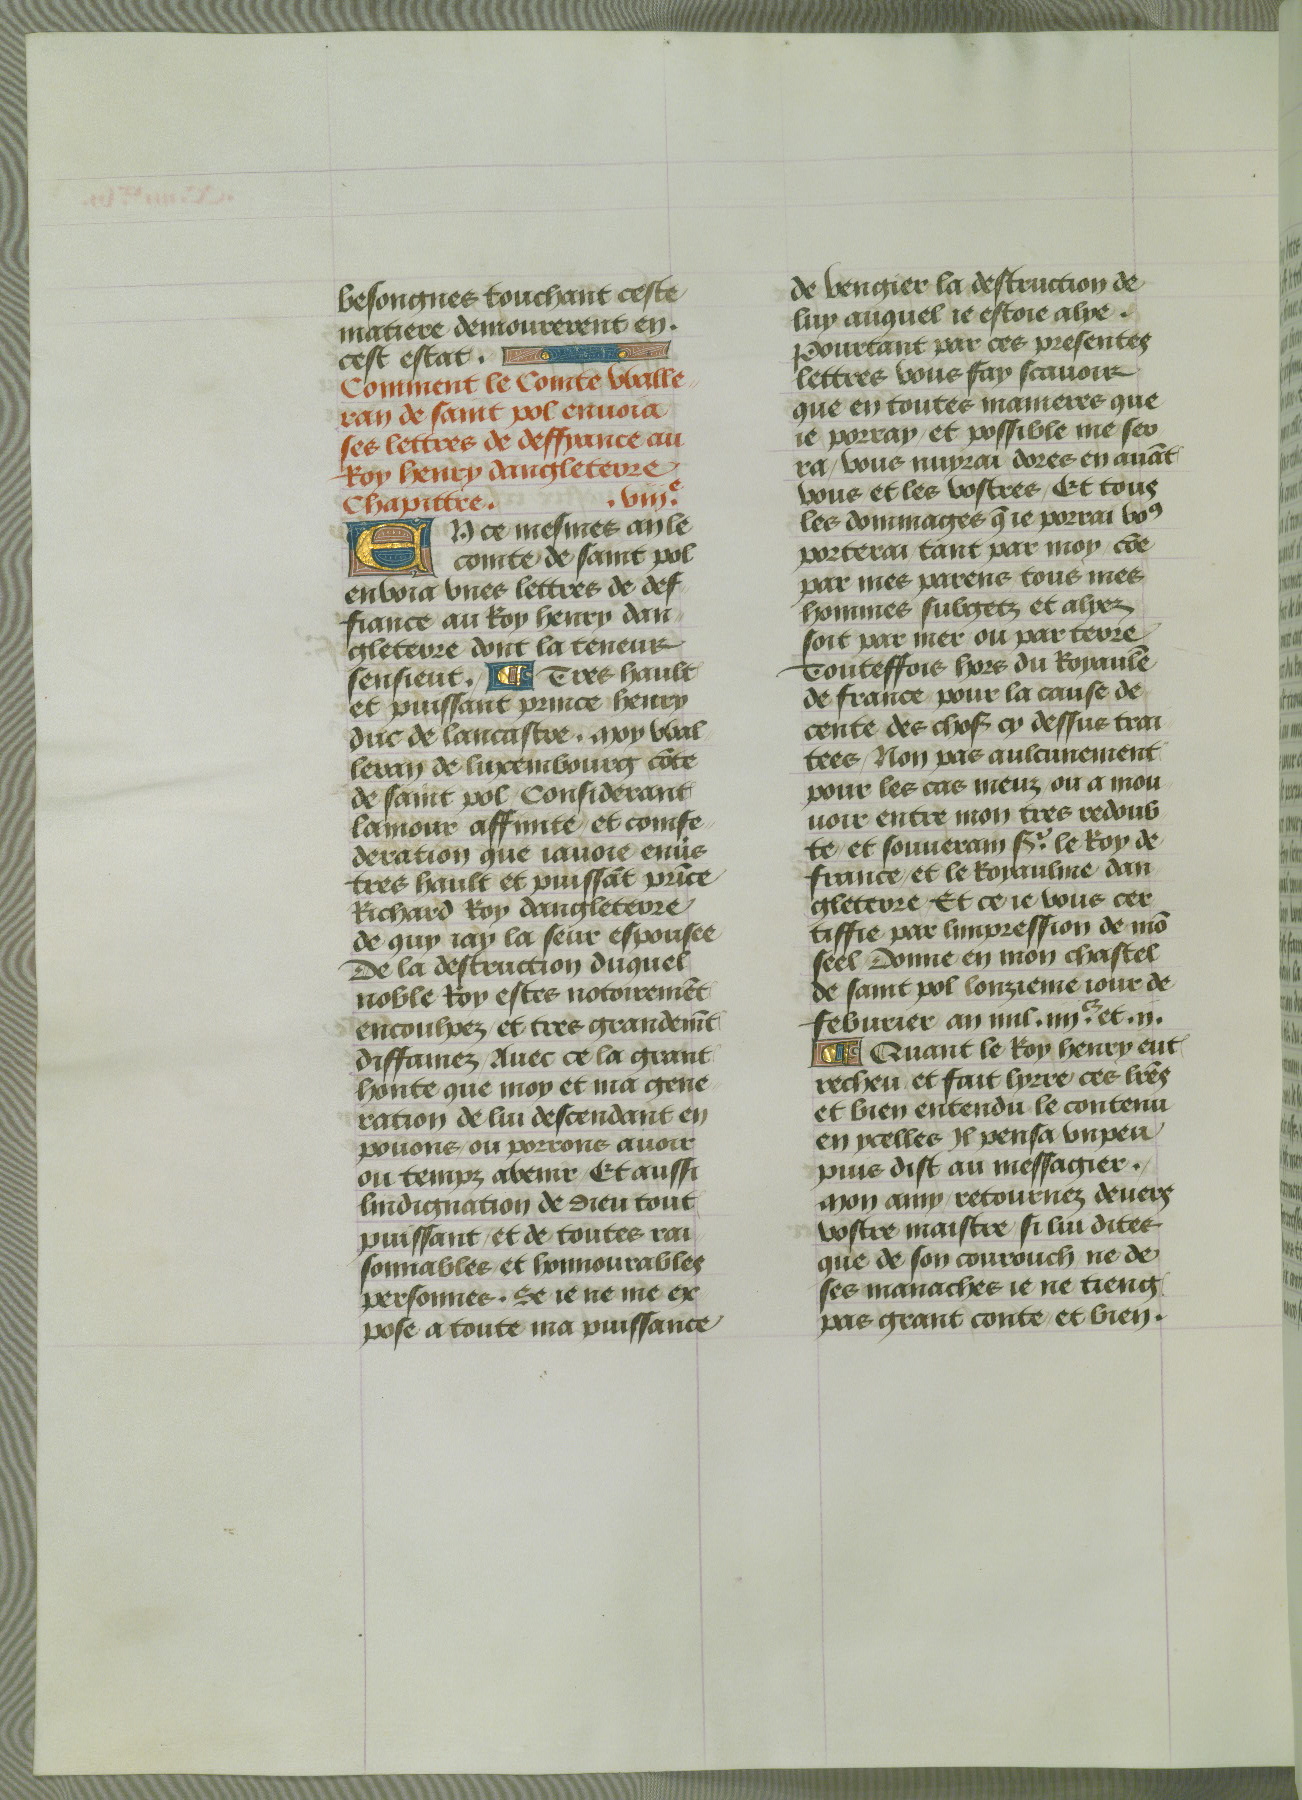 besongnes touchant ceste
matiere demourerent en.
cest estat.
Comment le Comte vvalle-
ran de saint pol enuoia
ses lettres de deffiance au
Roy henry dangleterre
Chapittre. .viije.
EN ce mesmes an le
comte de saint pol
enuoia vnes lettres de def
fiance au Roy henry dan
gleterre dont la teneur
sensieut. Tres hault
et puissant prince henry
duc de lancastre. Moy vval
leran de luxembourg cōte
de saint pol Considerant
lamour affinite et confe-
deration que iauoie enūs
tres hault et puissāt prīce
Richard Roy dangleterre
de quy iay la seur espousee
De la destruction duquel
noble Roy estes notoiremēt
encoulpez et tres grandemēt
diffamez Auec ce la grant
honte que moy et ma gene
ration de lui descendant en
pouons ou porrons auoir
ou tempz aduenir Et aussi
lindignation de dieu tout
puissant et de toutes rai
sonnables et honnourables
personnes. Se ie ne me ex
pose a toute ma puissance
de vengier la destruction de
luy auquel ie estoie alye.
Pourtant par ces presentes
lettres vous fay scauoir
que en toutes manieres que
ie porray et possible me ser
ra vous nuyrai dores en auāt
vous et les vostres Et tous
les dommages q̄ ie porrai voꝰ
porterai tant par moy cōe
par mes parens tous mes
hommes subgetz et alyez
soit par mer ou par terre
Touteffois hors du Royaulē
de france pour la cause de
cente des choſ cy dessus trai
tees Non pas aulcunement
pour les cas meuz ou a mou
uoir entre mon tres redoub
te et souuerain sr. le Roy de
france et le Royaulme dan
gleterre Et ce ie vous cer
tiffie par limpression de mō
seel Donne en mon chastel
de saint pol lonzieme iour de
feburier an mil. iiijc. et .ij.
Quant le Roy henry eut
recheu et fait lyrre ces lrēs
et bien entendu le contenu
en ycelles Il pensa vn peu
puis dist au messagier.
Mon amy retournez deuers
vostre maistre si lui dites
que de son courouch ne de
ses manaches ie ne tieng
pas grant conte et bien.